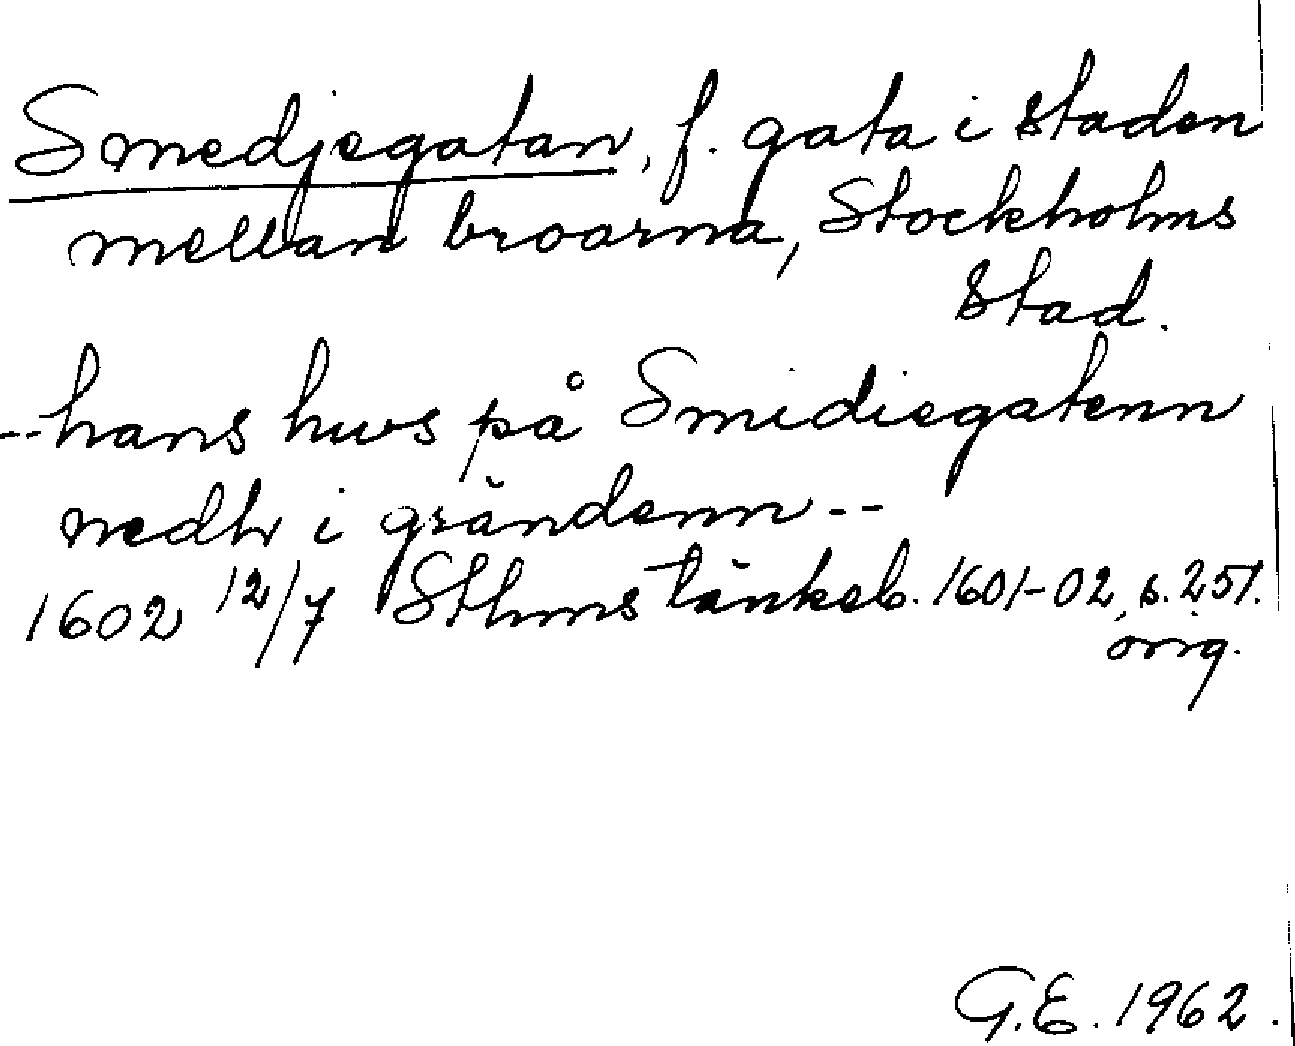 Smedjegatan, f. gata i staden
mellan broarna, Stockholms
stad.
--hans hws på Smidiegatenn
nedhr i grändenn--
1602 12/7 Sthms tänkeb. 1601-02, s. 251.
orig.
G.E. 1962.